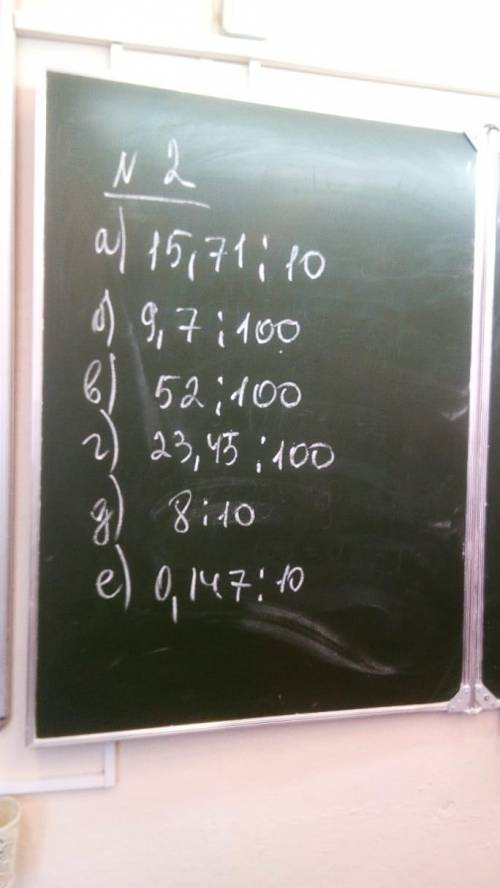 N 2
а) 15,71 : 10
б) 9,7 : 100
в) 52 : 100
г) 23,45 : 100
д) 8 : 10
е) 0,147 : 10